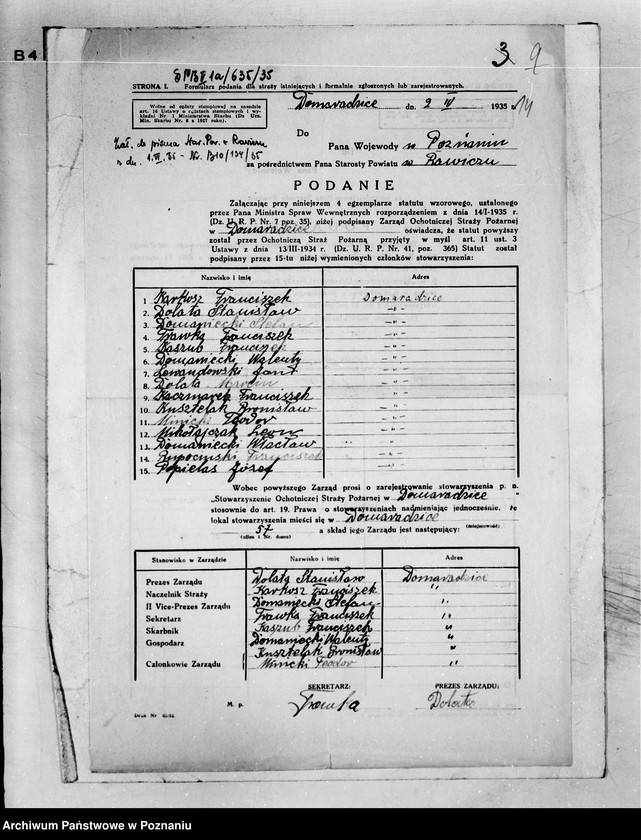 B4
3 9
SPBII 1a/635/35
STRONA I. Formularz podania dla straży istniejących i formalnie zgłoszonych lub zarejestrowanych.
Wolne od opłaty stemplowej na zasadzie
art. 16 Ustawy o opłatach stemplowych i wy-
kładni Nr. 1 Ministerstwa Skarbu (Dz. Urz.
Min. Skarbu Nr. 6 z 1927 roku).
Domaradzice dn. 2 IV 1935 r.
14
Zał. do pisma Star. Pow. w Rawiczu
z dn. 1.VI.35 - Nr. B10/134/35
Do
Pana Wojewody w Poznaniu
za pośrednictwem Pana Starosty Powiatu w Rawiczu
PODANIE
Załączając przy niniejszem 4 egzemplarze statutu wzorowego, ustalonego
przez Pana Ministra Spraw Wewnętrznych rozporządzeniem z dnia 14/I-1935 r.
(Dz. U. R. P. Nr. 7 poz. 35), niżej podpisany Zarząd Ochotniczej Straży Pożarnej
w Domaradzice oświadcza, że statut powyższy
został przez Ochotniczą Straż Pożarną przyjęty w myśl art. 11 ust. 3
Ustawy z dnia 13/III-1934 r. (Dz. U. R. P. Nr. 41, poz. 365) Statut został
podpisany przez 15-tu niżej wymienionych członków stowarzyszenia:
Nazwisko i imię Adres
1 Karkosz Franciszek Domaradzice
2. Dolata Stanisław -"-
3. Domaniecki Stefan -"-
4. Frawka Franciszek -"-
5. Kaszub Franciszek -"-
6. Domaniecki Walenty -"-
7. Lewandowski Jant -"-
8. Dolata Marcin -"-
9. Kaczmarek Franciszek -"-
10. Kusztelak Bronisław -"-
11. Minicki Teodor -"-
12. Mikołajczak Leon -"-
13. Domaniecki Wacław -"-
14. Franciszek -"-
15. Popielas Józef -"-
Wobec powyższego Zarząd prosi o zarejestrowanie stowarzyszenia p. n.
„Stowarzyszenie Ochotniczej Straży Pożarnej w Domaradzice
stosownie do art. 19. Prawa o stowarzyszeniach nadmieniając jednocześnie, że
lokal stowarzyszenia mieści się w Domaradzice
(miejscowość)
57 a skład jego Zarządu jest następujący:
(ulica i Nr. domu)
Stanowisko w Zarządzie Nazwisko i imię Adres
Prezes Zarządu Dolata Stanisław Domaradzice
Naczelnik Straży Karkosz Franciszek "
II Vice-Prezes Zarządu Domaniecki Stefan "
Sekretarz Frawka Franciszek "
Skarbnik Kaszub Franciszek "
Gospodarz Domaniecki Walenty "
Kusztelak Bronisław "
Członkowie Zarządu Minicki Teodor "
SEKRETARZ: PREZES ZARZĄDU:
M. p. Frawka Dolata
Archiwum Państwowe w Poznaniu